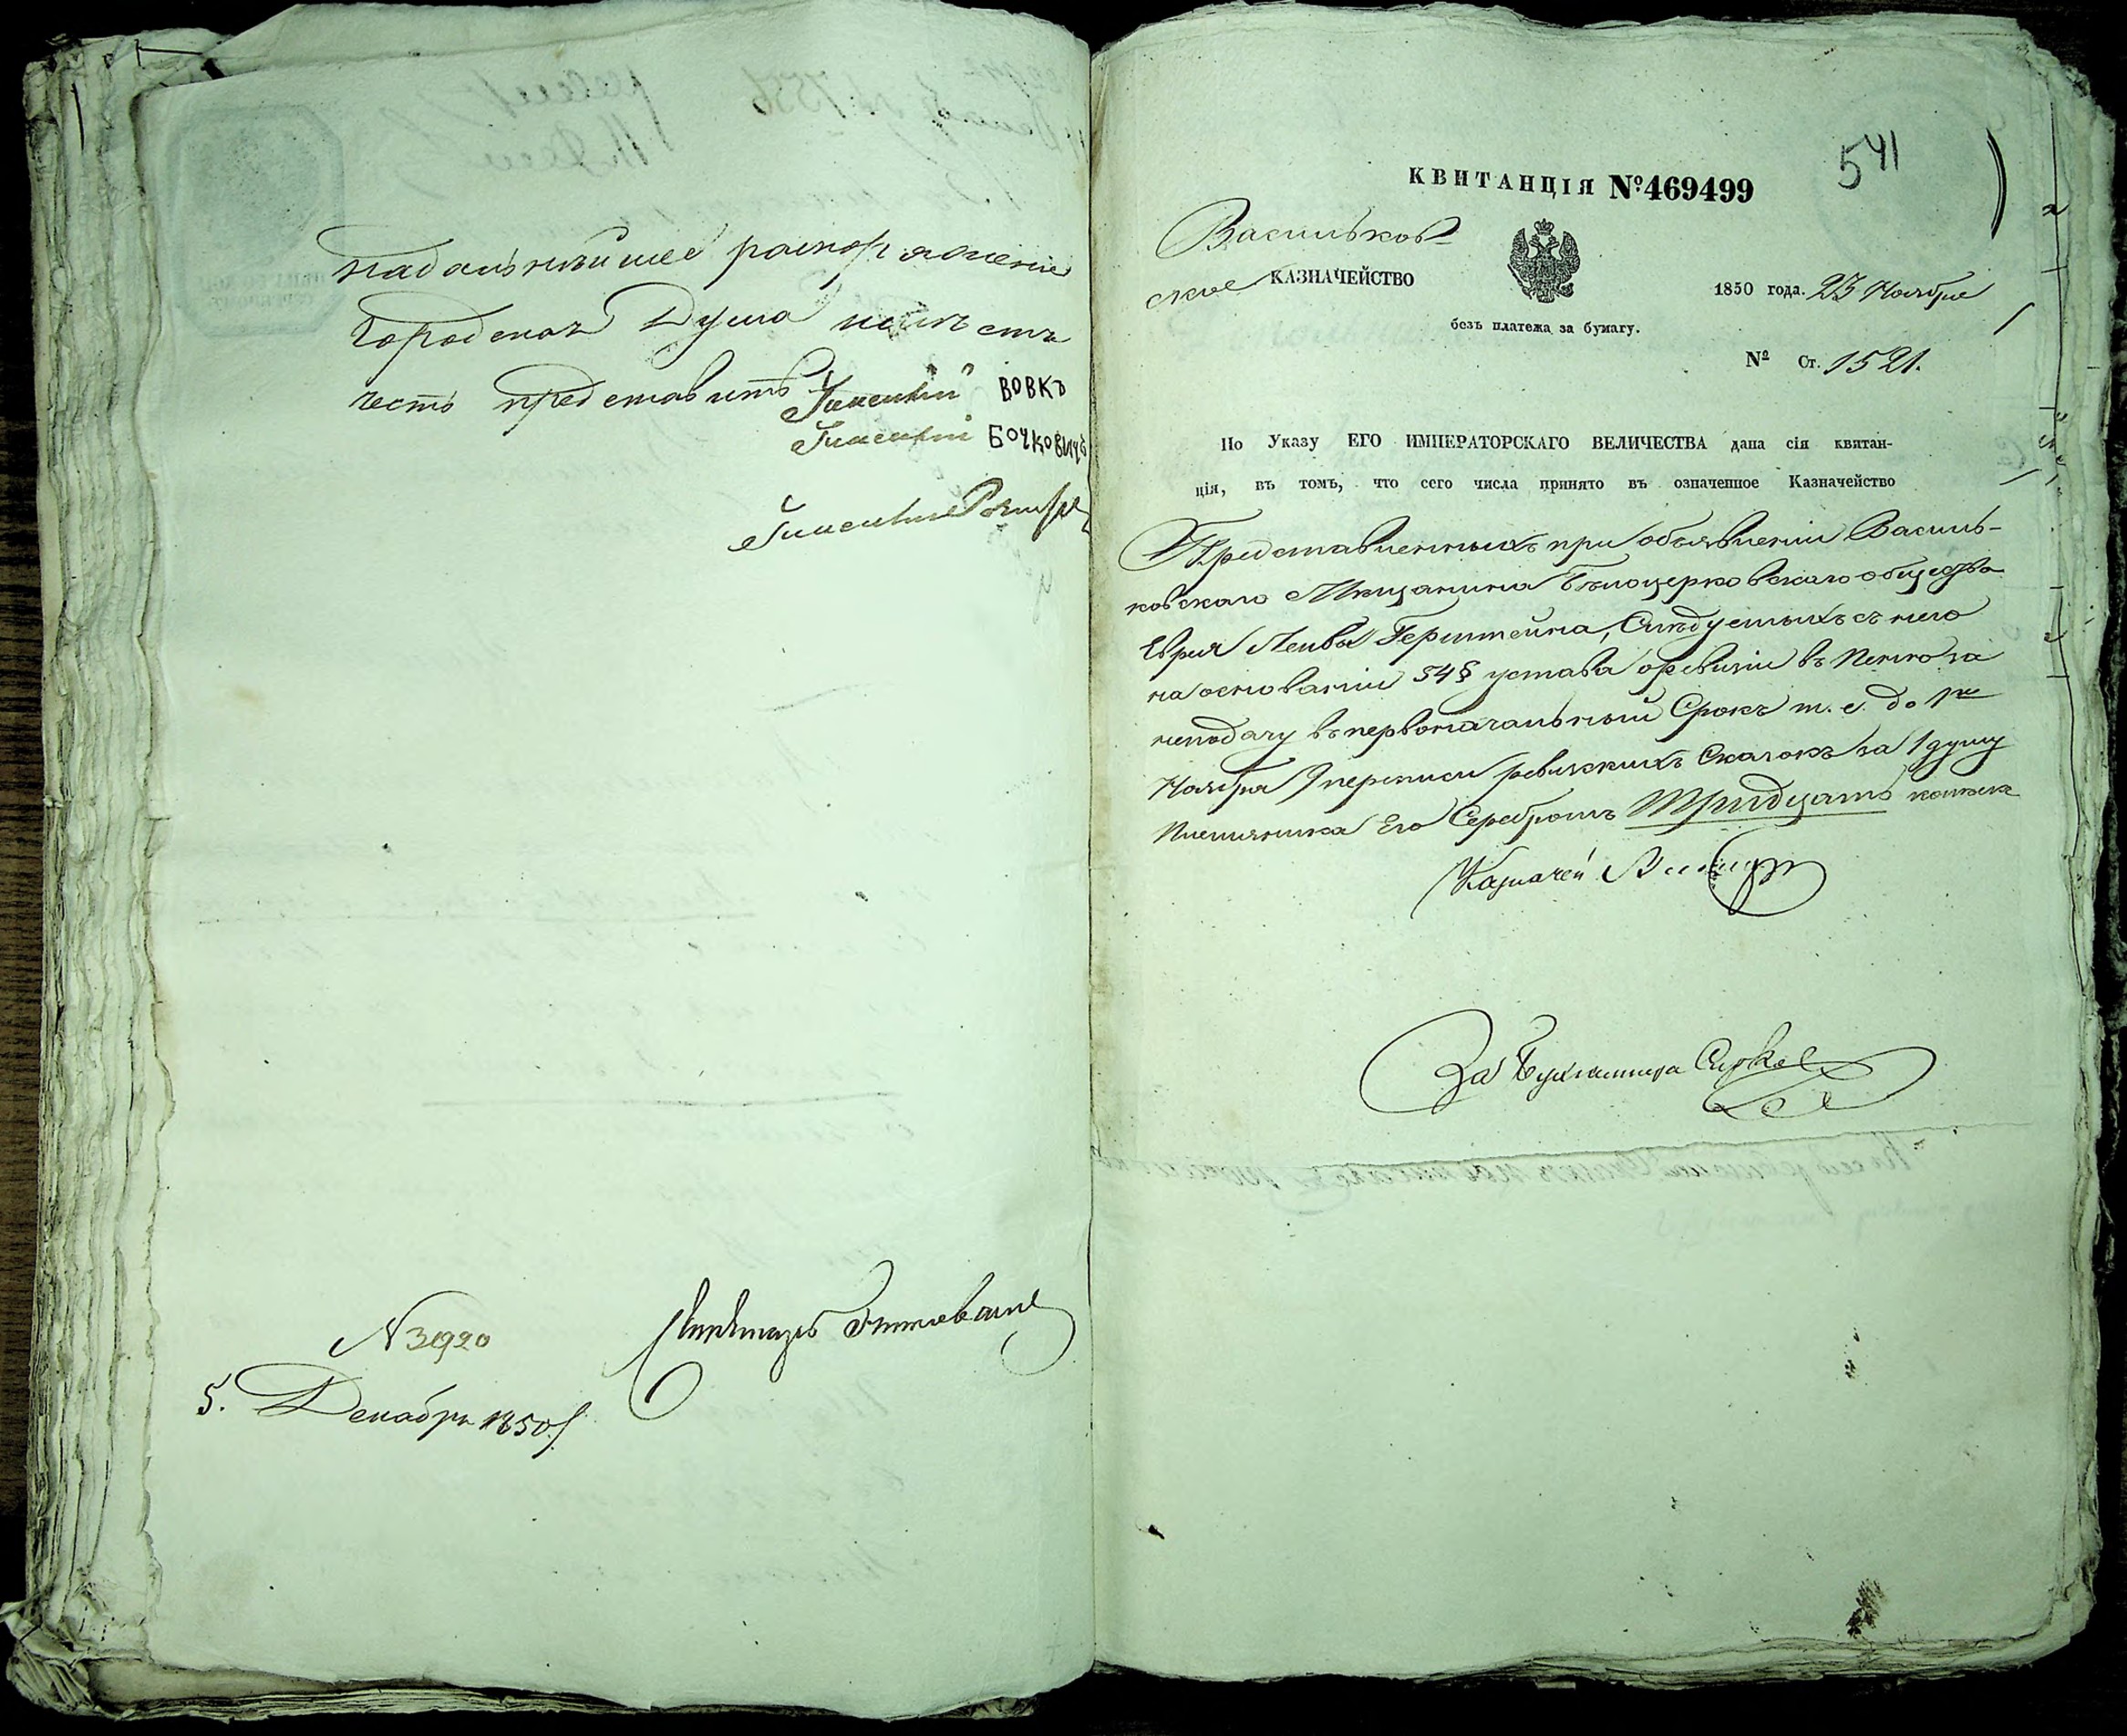 надальнѣйшее распоряженіе
Городская Дума имѣетъ
честь представить Гласный ВОВКЪ
Гласный БОЧКОВИЧЪ
Гласный
N 3920
5. Декабря 1850 г.
541
КВИТАНЦІЯ №469499
Васильков-
ское КАЗНАЧЕЙСТВО
1850 года. 23 Ноября
безъ платежа за бумагу.
№ Ст. 1521.
По Указу ЕГО ИМПЕРАТОРСКАГО ВЕЛИЧЕСТВА дана сія квитан-
ція, въ томъ, что сего числа принято въ означенное Казначейство
Представленныхъ при объявленіи Василь-
ковскаго Мѣщанина Бѣлоцерковскаго общества
Еврея Лейбы Герштейна, Слѣдуемыхъ съ него
на основаніи 54 § устава о ревизіи въ Пеню за
неподачу въ первоначальный Срокъ т. е. до 1го
Ноября 9 переписи ревизкихъ Сказокъ за 1 душу
Племянника Его Серебромъ Тридцать копѣекъ
Казначей
За Бухгалтера